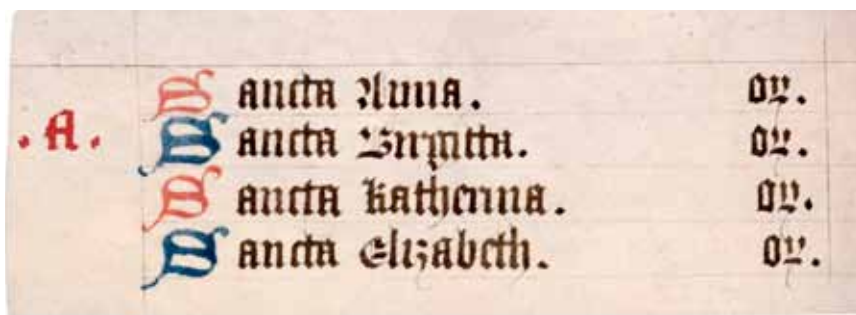 Sancta Anna. or.
.A.
Sancta Birgitta. or.
Sancta Katherina. or.
Sancta Elizabeth. or.